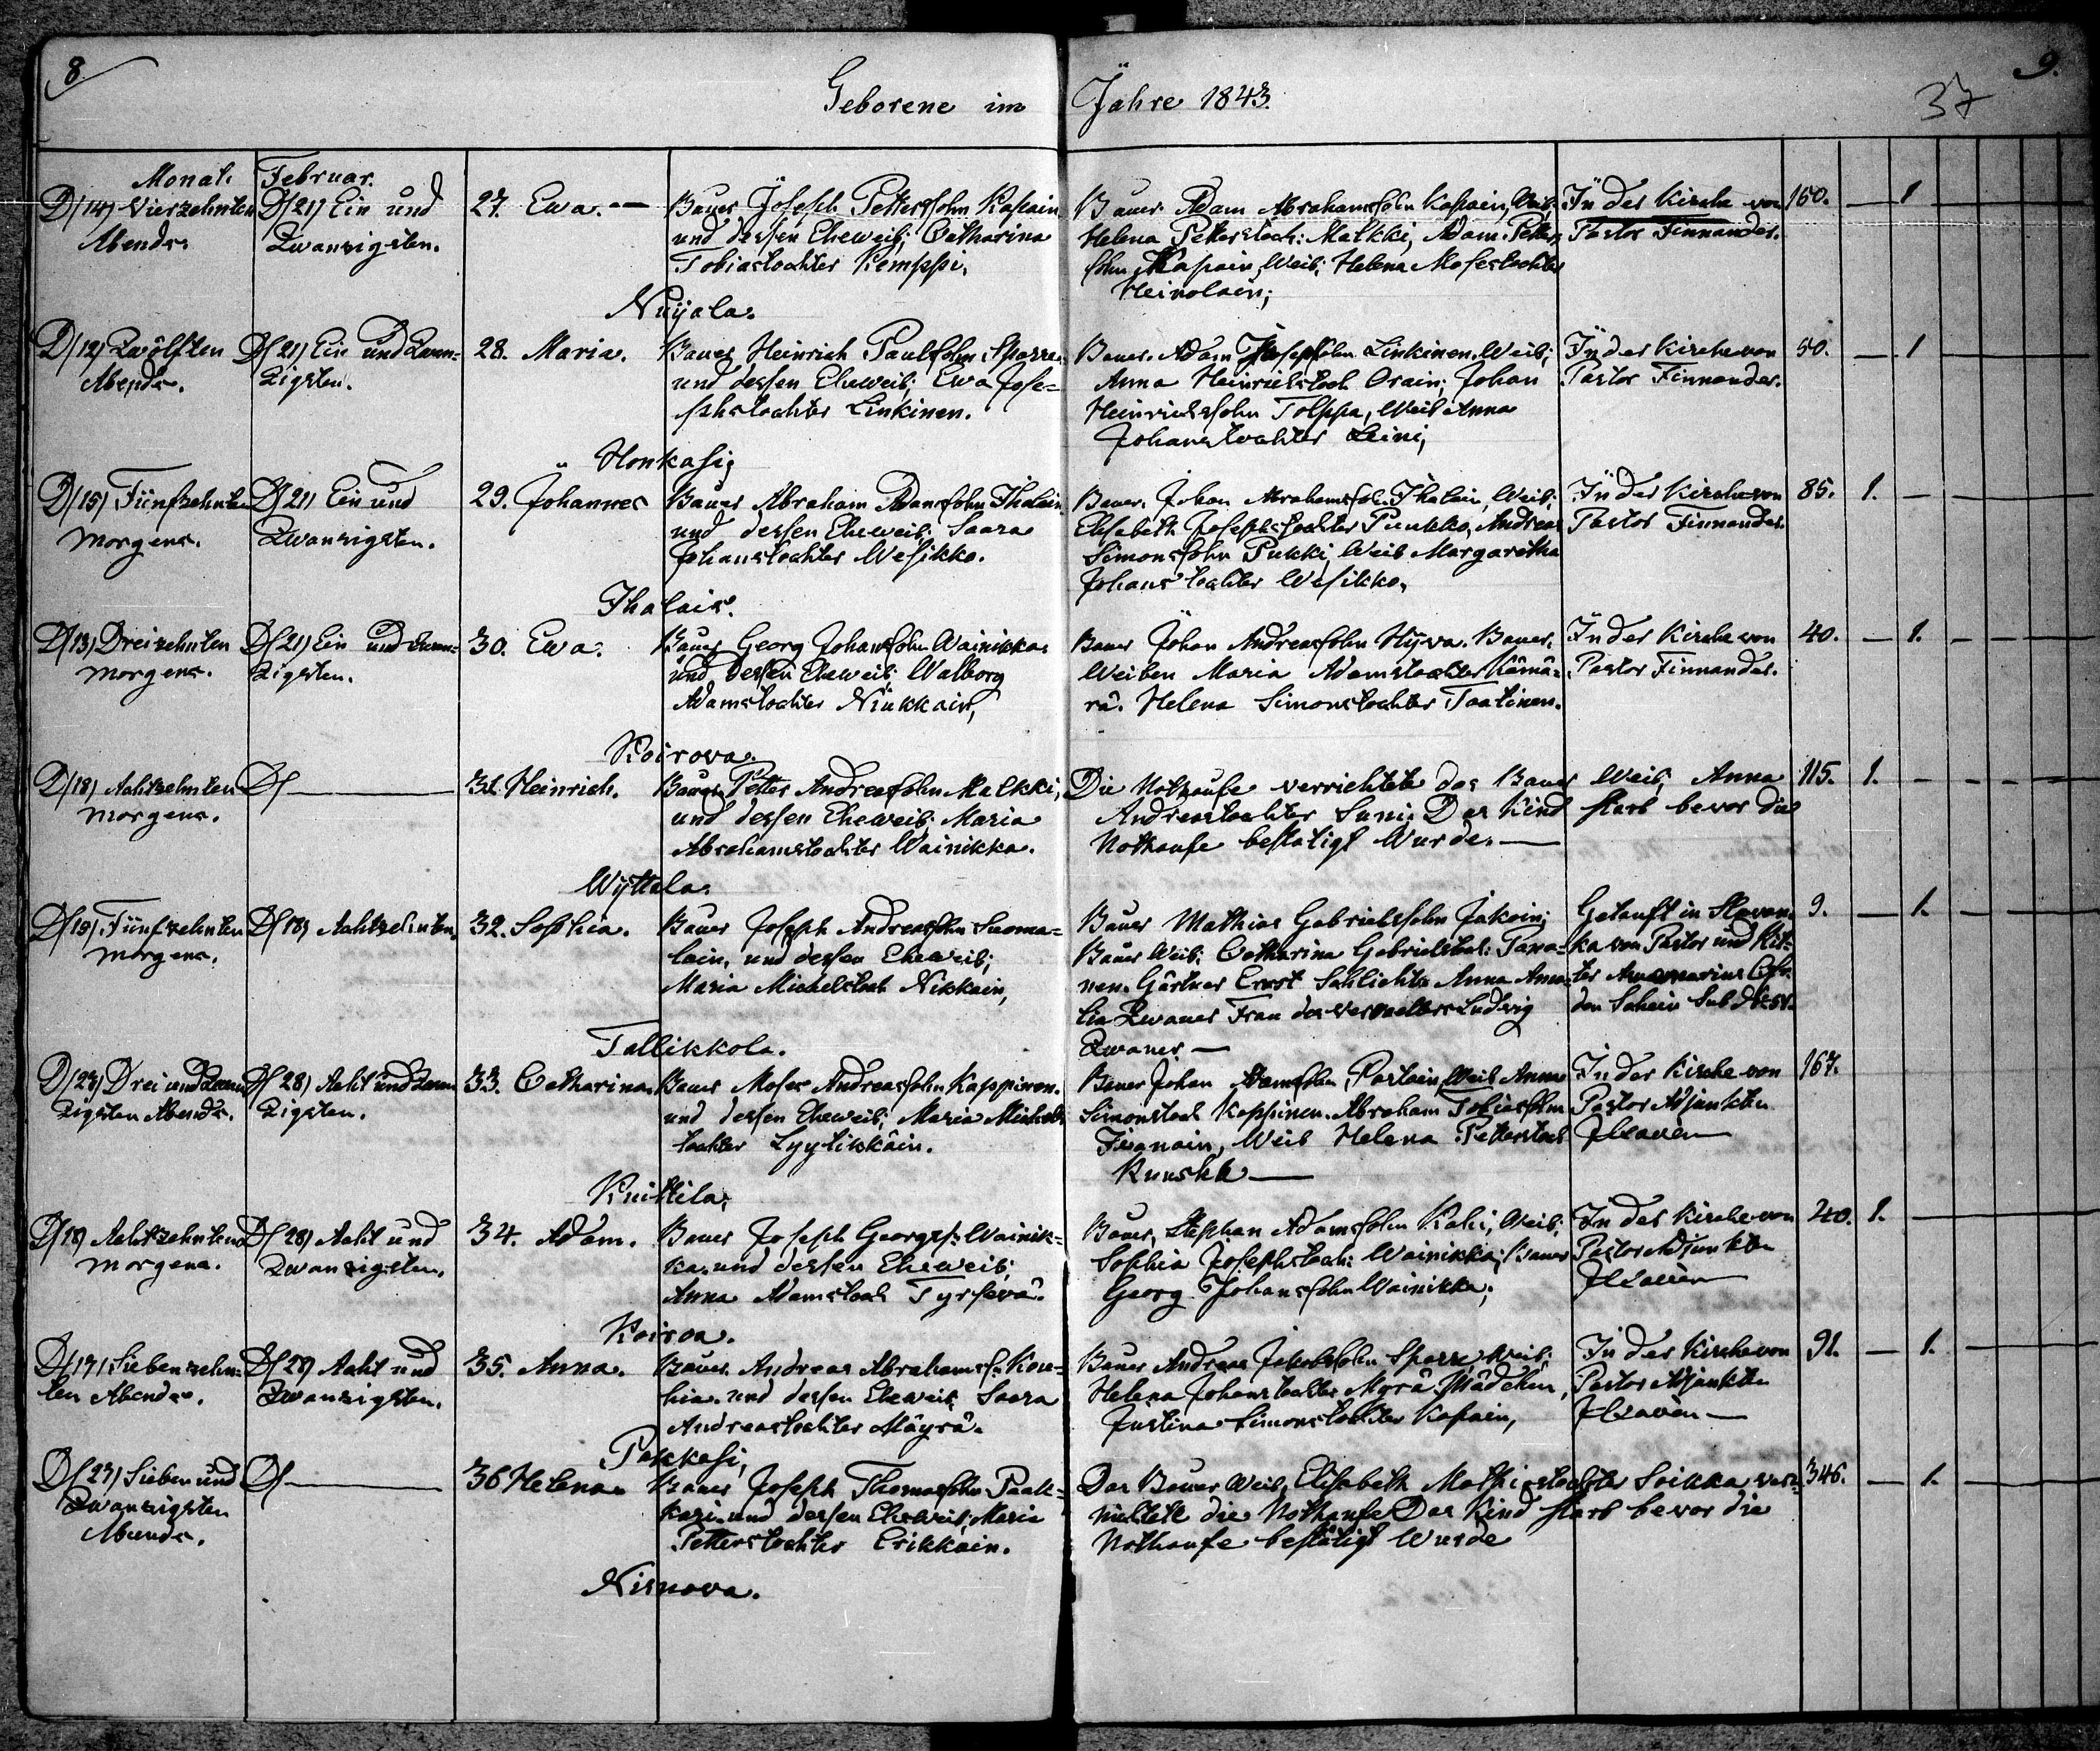 8
9.
Geborene im Jahre 1843.
37
Monat. Februar.
D/14) Vierzehnten
Abends.
D/21) Ein und
Zwanzigsten.
27. Ewa.
Bauer Joseph Petterssohn Kapain
und dessen Eheweib; Catharina
Tobiastochter Kemppi,
Bauer Adam Abrahamssohn Kapain, Weib;
Helena Petterstoch: Malkki, Adam Petters
sohn Kapain, Weib; Helena Mosestochter
Heinolain;
In der Kirche von
Pastor Finnander.
160. 1
Nuijala.
D/12) Zwölften
Abends.
D/21) Ein und Zwan=
zigsten.
28. Maria.
Bauer Heinrich Paulssohn Sparre
und dessen Eheweib; Ewa Jose=
phstochter Linkinen.
Bauer Adam Josephsohn Linkinen. Weib;
Anna Heinrichstoch Orain; Johan
Heinrichssohn Tolppa, Weib Anna
Johanstochter Leini,
In der Kirche von
Pastor Finnander.
50. — 1
Honkasi;
D/15) Fünfzehnten
Morgens.
D/21) Ein und
Zwanzigsten.
29. Johannes
Bauer Abraham Adamssohn Ihalain
und dessen Eheweib; Saara
Johanstochter Wesikko.
Bauer Johan Abrahamssohn Ihalain, Weib;
Elisabeth Josephstochter Pukko, Andreas
Simonssohn Pukki, Weib Margaretha
Johanstochter Wesikko,
In der Kirche von
Pastor Finnander.
85. 1.
Ihalais.
D/13) Dreizehnten
Morgens.
D/21) Ein und Zwan=
zigsten.
30. Ewa.
Bauer Georg Johanssohn Wainikka
und dessen Eheweib; Walborg
Adamstochter Niukkain,
Bauer Johan Andreassohn Hijva. Bauer.
Weiben Maria Adamstochter Kämä=
rä. Helena Simonstochter Taatinen.
In der Kirche von
Pastor Finnander.
40. — 1.
Koirova.
D/18) Achtzehnten
Morgens.
D/ —
31. Heinrich.
Bauer Petter Andreassohn Malkki;
und dessen Eheweib; Maria
Abrahamstochter Wainikka.
Die Nothtaufe verrichtete das Bauer Weib; Anna
Andreastochter Suni. Das Kind starb bevor die
Nothtaufe bestätigt Wurde. —
115. 1.
Wÿttala.
Fünfzehnten
Morgens.
D/18) Achtzehnten.
32. Sophia.
Bauer Joseph Andreassohn Suoma=
lain, und dessen Eheweib;
Maria Michelstoch Nikkain,
Bauer Mathias Gabrielssohn Jakoin;
Bauer Weib; Catharina Gabrielstoch: Tawa=
nen. Gärtner Ernst Schlichte Anna Ama=
lia Zwaner Frau des Verwalters Ludvig
Zwaner —
Getauft in Slavan=
ka von Pastor und Rit=
ter
den Schein Sub
9. — 1.
Tallikkola.
D/23) Drei und Zwan
zigsten Abends.
D/28) Acht und Zwan
zigsten.
33. Catharina.
Bauer Moses Andreassohn Kappinen.
und dessen Eheweib; Maria Michels
tochter Lyytikkäin.
Bauer Johan Adamssohn Partain, Weib Anna
Simonstoch Kappinen. Abraham Tobiassohn
Weib Helena Petterstoch
In der Kirche von
Pastor Adjunkten
167.
Knittila,
D/18) Achtzehnten
Morgens.
D/28) Acht und
Zwanzigsten.
34. Adam.
Bauer Joseph Georgs: Wainik=
ka. und dessen Eheweib;
Anna Adamstoch Tyrsevä.
Bauer, Stephan Adamssohn Kahi, Weib;
Sophia Josephstoch: Wainikka; Bauer
Georg Johanssohn Wainikka;
In der Kirche von
Pastor Adjunkten
20. 1.
Koiroa.
D/17) Siebenzehn=
ten Abends.
D/28) Acht und
Zwanzigsten.
35. Anna.
Bauer Andreas Abrahamss.
und dessen Eheweib Saara
Andreastochter Mäyrä.
Bauer Andreas Jakobssohn Sparre, Weib;
Helena Johanstochter Myrä. Mädchen,
Justina Simonstochter Kapain,
In der Kirche von
Pastor Adjunkten
91. — 1.
Pakkasi,
D/27) Sieben und
Zwanzigsten
Abends.
D/ —
36 Helena.
Bauer Joseph Thomassohn Paak=
kari. und dessen Eheweib; Maria
Petterstochter Erikkain.
Das Bauer Weib, Elisabeth Mathiastochter Soikka ver=
richtete die Nothtaufe Das Kind starb bevor die
Nothtaufe bestätigt Wurde
346. — 1.
Nisnova.